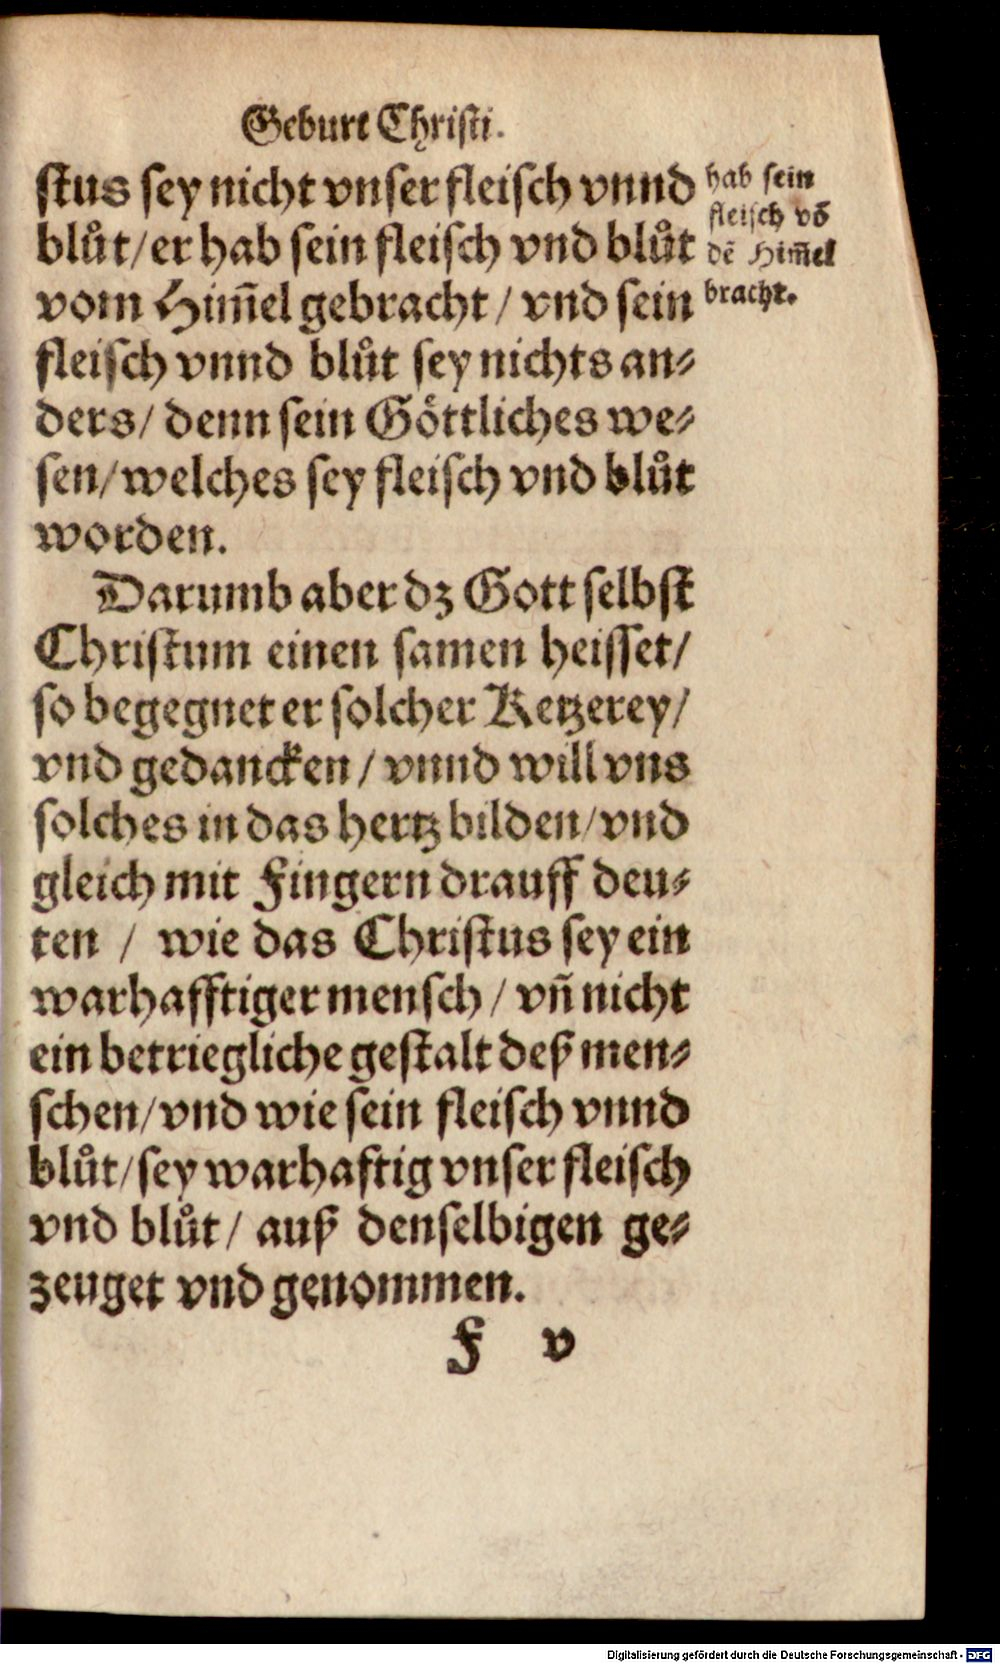 Geburt Christi.
stus sey nicht vnser fleisch vnnd
blůt/er hab sein fleisch vnd blůt
vom Him̃el gebracht / vnd sein
fleisch vnnd blůt sey nichts an⸗
ders/ denn sein Göttliches we⸗
sen/welches sey fleisch vnd blůt
worden.
Darumb aber dz Gott selbst
Christum einen samen heisset/
so begegnet er solcher Ketzerey/
vnd gedancken / vnnd will vns
solches in das hertz bilden/vnd
gleich mit Fingern drauff deu⸗
ten / wie das Christus sey ein
warhafftiger mensch / vñ nicht
ein betriegliche gestalt deß men⸗
schen/vnd wie sein fleisch vnnd
blůt/sey warhaftig vnser fleisch
vnd blůt/ auß denselbigen ge⸗
zeuget vnd genommen.
hab sein
fleisch võ
dẽ Him̃el
bracht.
F v
Digitalisierung gefördert durch die Deutsche Forschungsgemeinschaft - DFG